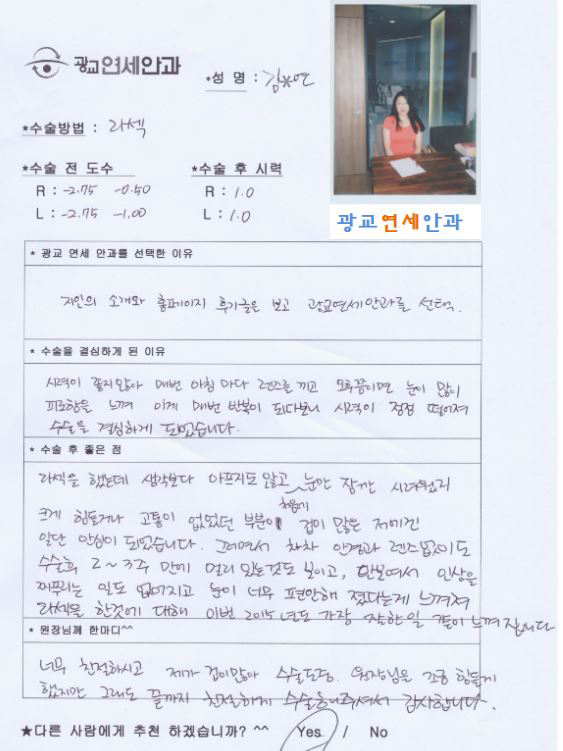 광교연세안과
*성 명 : 김*연
*수술방법 : 라섹
*수술 전 도수
*수술 후 시력
R : -2.75 -0.50
R : 1.0
L : -2.75 -1.00
L : 1.0
광교연세안과
* 광교 연세 안과를 선택한 이유
지인의 소개와 홈페이지 후기글을 보고 광교연세안과를 선택.
* 수술을 결심하게 된 이유
시력이 좋지않아 매번 아침 마다 렌즈를 끼고 오후쯤이면 눈이 많이
피로함을 느껴 이게 매번 반복이 되다보니 시력이 점점 떨어져
수술을 결심하게 되었습니다.
* 수술 후 좋은 점
라섹을 했는데 생각보다 아프지도 않고 눈만 잠깐 시려웠지
처음에
크게 힘들거나 고통이 없었던 부분이 겁이 많은 저에겐
일단 안심이 되었습니다. 그러면서 차차 안경과 렌즈없이도
수술후 2~3주 만에 멀리 있는것도 보이고, 안보여서 인상을
찌푸리는 일도 없어지고 눈이 너무 편안해 졌다는게 느껴져
라섹을 한것에 대해 이번 2015년도 가장 잘한일 같이 느껴집니다
* 원장님께 한마디^^
너무 친절하시고 제가 겁이많아 수술도중 원장님을 조금 힘들게
했지만 그래도 끝까지 친절하게 수술해주셔서 감사합니다.
★다른 사람에게 추천 하겠습니까? ^^ Yes / No